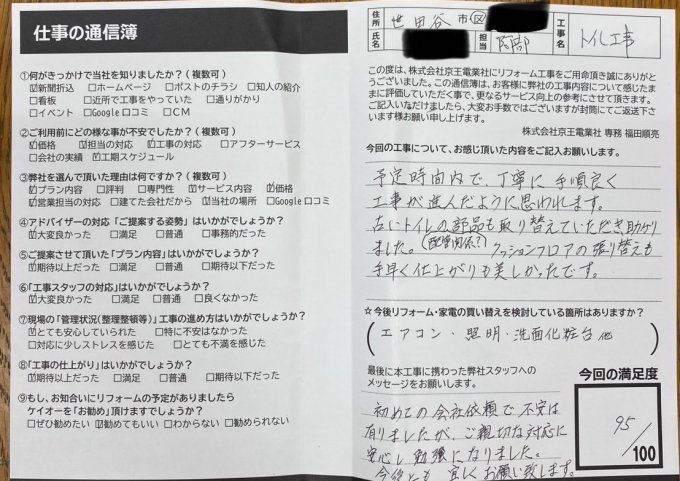 仕事の通信簿
①何がきっかけで当社を知りましたか？(複数可)
☑新聞折込 □ホームページ □ポストのチラシ □知人の紹介
□看板 □近所で工事をやっていた □通りがかり
□イベント □Google口コミ □CM
②ご利用前にどの様な事が不安でしたか？(複数可)
☑価格 ☑担当の対応 ☑工事の対応 □アフターサービス
□会社の実績 ☑工期スケジュール
③弊社を選んで頂いた理由は何ですか？(複数可)
☑プラン内容 □評判 □専門性 ☑サービス内容 ☑価格
☑営業担当の対応 □建てた会社だから ☑当社の場所 □Google口コミ
④アドバイザーの対応「ご提案する姿勢」はいかがでしょうか？
☑大変良かった □満足 □普通 □事務的だった
⑤ご提案させて頂いた「プラン内容」はいかがでしょうか？
☑期待以上だった □満足 □普通 □期待以下だった
⑥「工事スタッフの対応」はいかがでしょうか？
☑大変良かった □満足 □普通 □良くなかった
⑦現場の「管理状況(整理整頓等)」工事の進め方はいかがでしょうか？
☑とても安心していられた □特に不安はなかった
□対応に少しストレスを感じた □とても不満を感じた
⑧「工事の仕上がり」はいかがでしょうか？
☑期待以上だった □満足 □普通 □期待以下だった
⑨もし、お知合いにリフォームの予定がありましたら
ケイオーを「お勧め」頂けますでしょうか？
□ぜひ勧めたい ☑勧めてもいい □わからない □勧められない
住所 世田谷 市区
氏名 担当 阿部
工事名 トイレ工事
この度は、株式会社京王電業社にリフォーム工事をご用命頂き誠にありがと
うございました。この通信簿は、お客様に弊社の工事内容について感じたま
まに評価していただく事で、更なるサービス向上の参考にさせて頂きます。
ご記入いただけましたら、大変お手数ではございますが封筒にてご返送下さ
います様お願い申し上げます。
株式会社京王電業社 専務 福田順亮
今回の工事について、お感じ頂いた内容をご記入お願いします。
予定時間内で、丁寧に手順良く
工事が進んだように思われます。
古いトイレの部品も取り替えていただき助かり
ました。(配管関係?)クッションフロアの張り替えも
手早く仕上がりも美しかったです。
☆今後リフォーム・家電の買い替えを検討している箇所はありますか？
(エアコン・照明・洗面化粧台他)
最後に本工事に携わった弊社スタッフへの
メッセージをお願いします。
初めての会社依頼で不安は
有りましたが、ご親切な対応に
安心し勉強になりました。
今後とも宜しくお願い致します。
今回の満足度
95/100